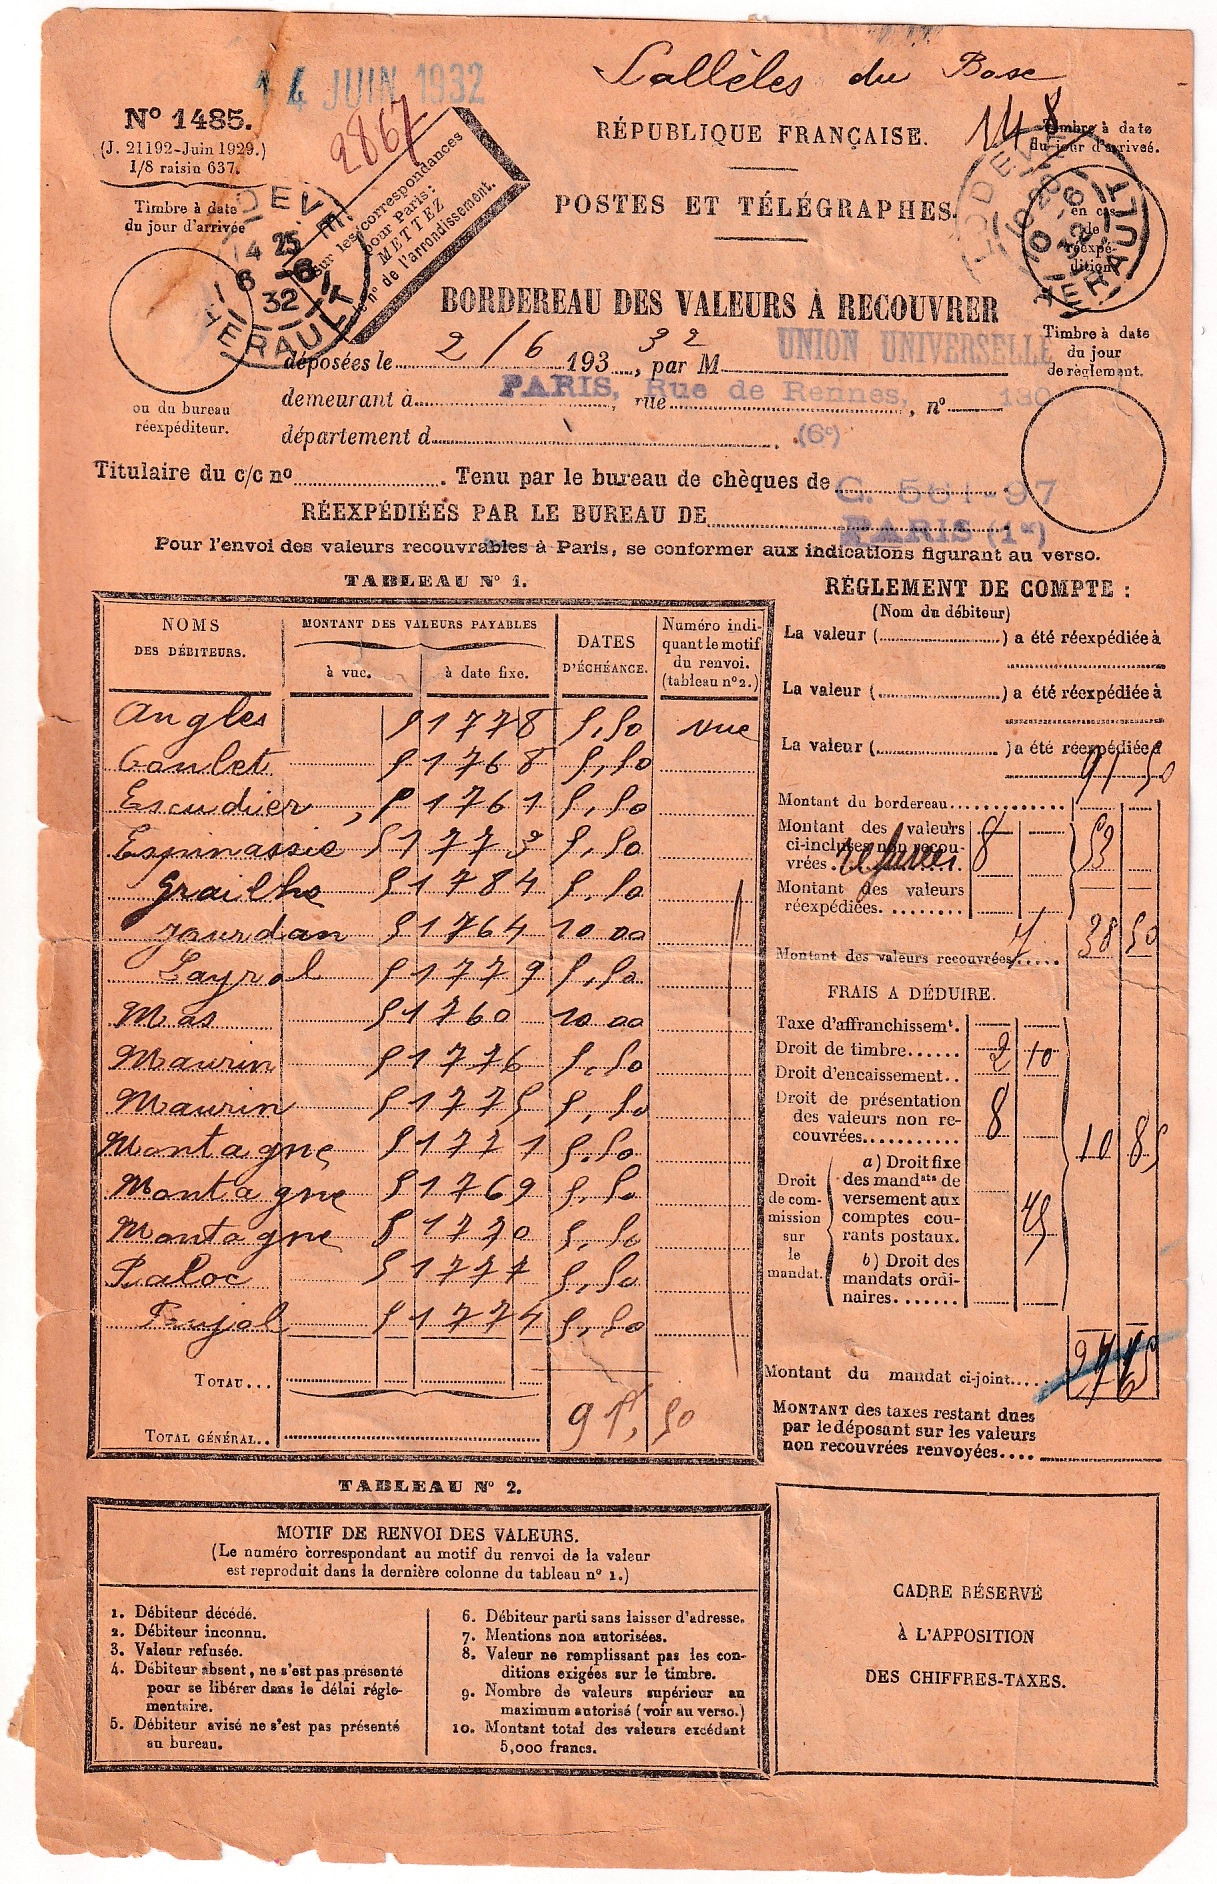 14 JUIN 1932
Sallèles du Bosc
2867
148
Nº 1485.
(J. 21192-Juin 1929.)
1/8 raisin 637.
RÉPUBLIQUE FRANÇAISE.
Timbre à date
du jour d'arrivée.
en cas
de
réexpé-
dition.
Timbre à date
du jour d'arrivée
sur les correspondances
pour Paris:
METTEZ
le nº de l'arrondissement.
POSTES ET TÉLÉGRAPHES.
LODEVE
14 25
6 - 6
32
HERAULT
LODEVE
10 20
10 - 6
32
HERAULT
BORDEREAU DES VALEURS À RECOUVRER
déposées le 2/6 1932, par M UNION UNIVERSELLE
demeurant à PARIS, rue Rue de Rennes, nº 130
département d (6e)
ou du bureau
réexpéditeur.
Timbre à date
du jour
de règlement.
Titulaire du c/c nº. Tenu par le bureau de chèques de C. 561-97
RÉEXPÉDIÉES PAR LE BUREAU DE PARIS (1er)
Pour l'envoi des valeurs recouvrables à Paris, se conformer aux indications figurant au verso.
TABLEAU Nº 1.
NOMS
DES DÉBITEURS.
MONTANT DES VALEURS PAYABLES
à vue.
à date fixe.
DATES
D'ÉCHÉANCE.
Numéro indi-
quant le motif
du renvoi.
(tableau nº 2.)
Angles 51778 5,50 vue
Coulet 51768 5,50
Escudier, 51761 5,50
Espinassie 51773 5,50
Grailhe 51784 5,50
Jourdan 51764 10 00
Layral 51779 5,50
Mas 51760 10 00
Maurin 51776 5,50
Maurin 51775 5,50
Montagne 51771 5,50
Montagne 51769 5,50
Montagne 51770 5,50
Paloc 51777 5,50
Pujol 51774 5,50
TOTAU...
TOTAL GÉNÉRAL.. 91,50
RÉGLEMENT DE COMPTE :
(Nom du débiteur)
La valeur (............) a été réexpédiée à
La valeur (............) a été réexpédiée à
La valeur (............) a été réexpédiée à
Montant du bordereau............ 91 50
Montant des valeurs
ci-incluses non recou-
vrées. refusées 8 53
Montant des valeurs
réexpédiées.........
Montant des valeurs recouvrées..... 7 38 50
FRAIS A DÉDUIRE.
Taxe d'affranchissemt.
Droit de timbre...... 2 10
Droit d'encaissement..
Droit de présentation
des valeurs non re-
couvrées........... 8
10 85
Droit
de com-
mission
sur
le
mandat.
a) Droit fixe
des mandats de
versement aux
comptes cou-
rants postaux. 75
b) Droit des
mandats ordi-
naires.......
Montant du mandat ci-joint..... 27 65
MONTANT des taxes restant dues
par le déposant sur les valeurs
non recouvrées renvoyées....
TABLEAU Nº 2.
MOTIF DE RENVOI DES VALEURS.
(Le numéro correspondant au motif du renvoi de la valeur
est reproduit dans la dernière colonne du tableau nº 1.)
1. Débiteur décédé.
2. Débiteur inconnu.
3. Valeur refusée.
4. Débiteur absent, ne s'est pas présenté
pour se libérer dans le délai régle-
mentaire.
5. Débiteur avisé ne s'est pas présenté
au bureau.
6. Débiteur parti sans laisser d'adresse.
7. Mentions non autorisées.
8. Valeur ne remplissant pas les con-
ditions exigées sur le timbre.
9. Nombre de valeurs supérieur au
maximum autorisé (voir au verso.)
10. Montant total des valeurs excédant
5,000 francs.
CADRE RÉSERVÉ
À L'APPOSITION
DES CHIFFRES-TAXES.